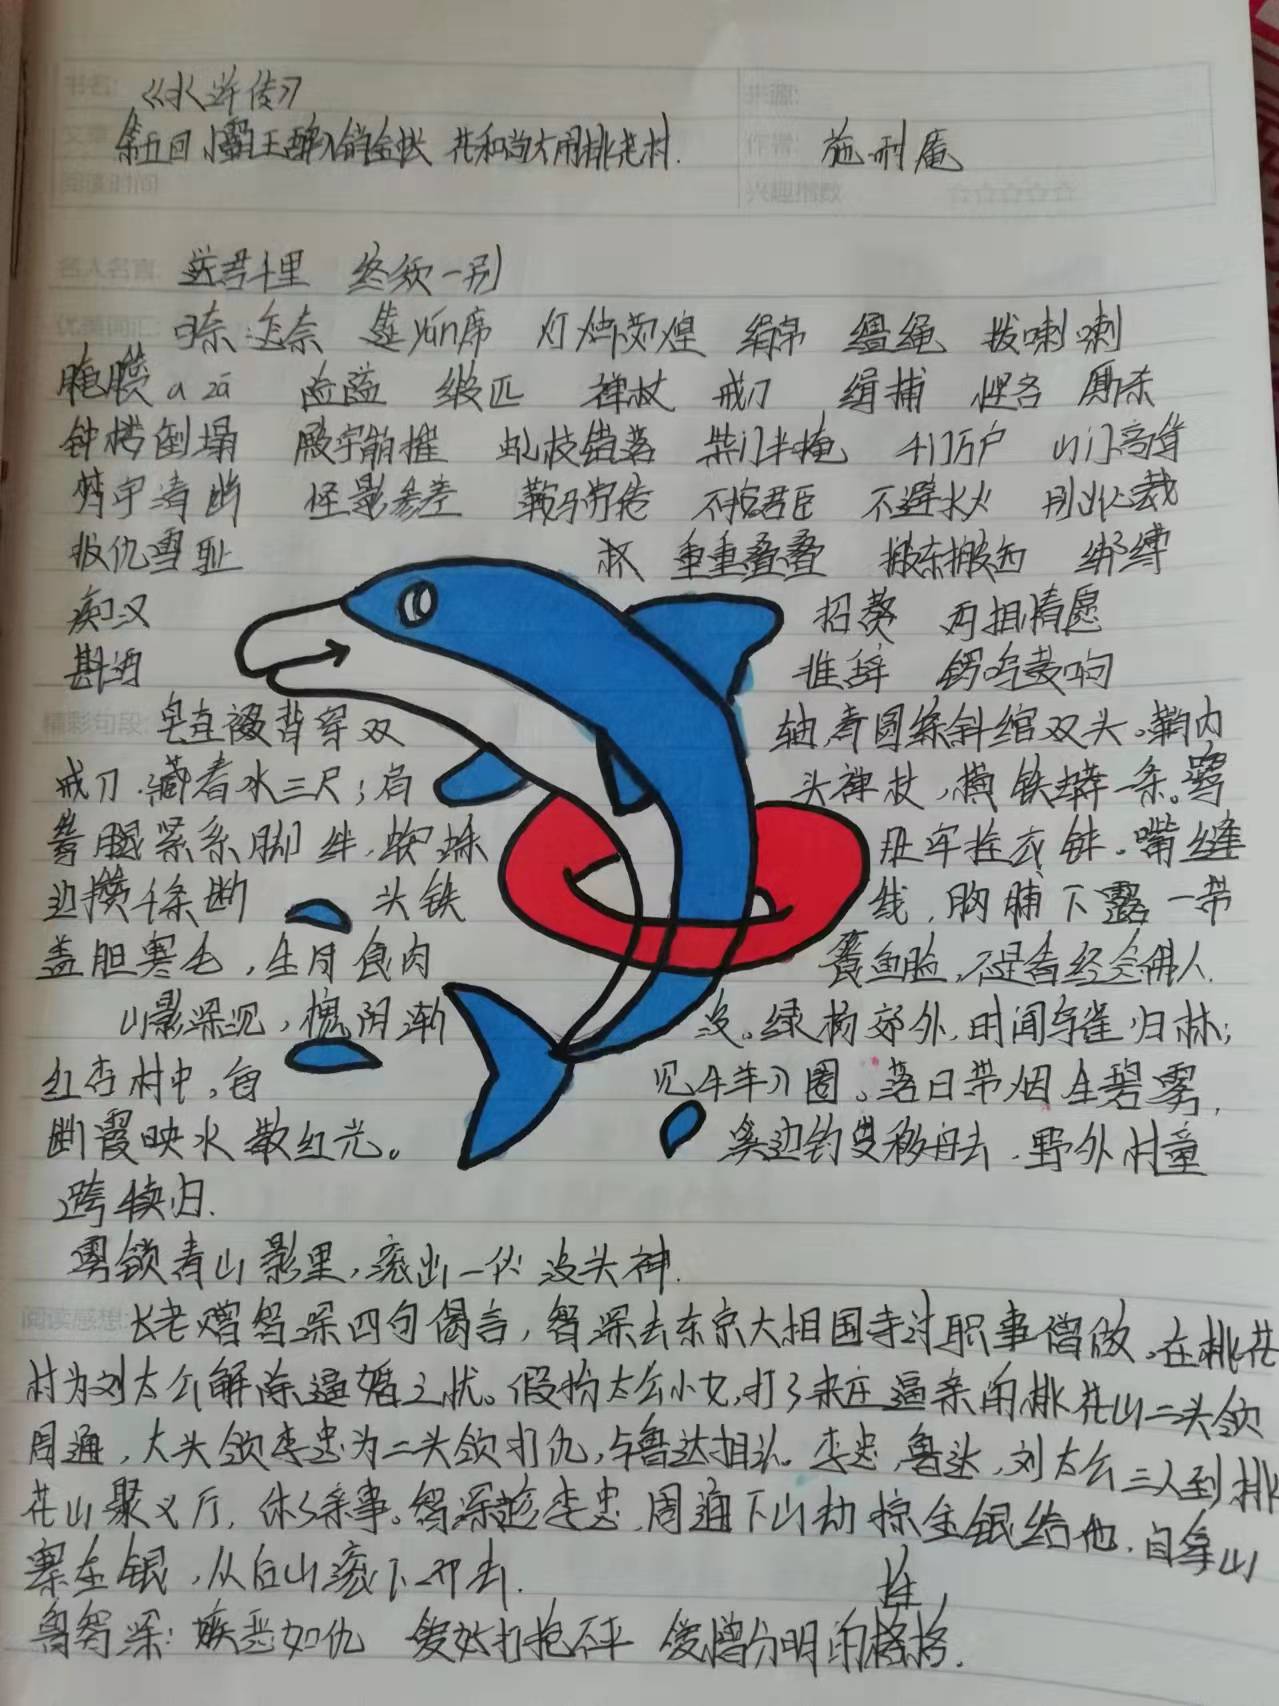 书名: 《水浒传》
第五回 小霸王醉入销金帐 花和尚大闹桃花村. 作者: 施耐庵
兴趣指数 ☆☆☆☆☆
名人名言: 送君千里 终须一别
优美词汇: 奈 怎奈 筵yán席 灯烛荧煌 绢帛 缰绳 拨喇喇
腌臜 a zā 缎匹 禅杖 戒刀 缉捕 悭吝 厮杀
钟楼倒塌 殿宇崩摧 虬枝错落 柴门半掩 千门万户 山门高耸
梵宇清幽 怪影参差 鞍马劳倦 不按君臣 不避水火 别作公裁
报仇雪耻 重重叠叠 搬东搬西 绑缚
痴汉 招赘 两相情愿
斟酒 推辞 锣鸣鼓响
精彩句段: 皂直裰背穿双 袖,青圆绦斜绾双头。鞘内
戒刀,藏春冰三尺;肩 头禅杖,横铁蟒一条。鹭
鸶腿紧系脚絣,蜘蛛 肚牢拴衣钵。嘴缝
边攒千条断 头铁 线,胸脯下露一带
盖胆寒毛,生成食肉 餐鱼脸,不是看经念佛人.
山影深沉,槐阴渐 没。绿杨郊外,时闻鸟雀归林;
红杏村中,每 见牛羊入圈。落日带烟生碧雾,
断霞映水散红光。 溪边钓叟移舟去,野外村童
跨犊归.
雾锁青山影里,滚出一伙没头神.
阅读感想: 长老赠智深四句偈言,智深去东京大相国寺讨职事僧做。在桃花
村为刘太公解除逼婚之扰。假扮太公小女,打了来庄逼亲的桃花山二头领
周通,大头领李忠为二头领打仇,与鲁达相认。李忠,鲁达,刘太公三人到桃
花山聚义厅,休了亲事。智深趁李忠,周通下山劫掠金银给他,自拿山
寨金银,从后山滚下冲去.
鲁智深:嫉恶如仇 爱好打抱不平 爱憎分明的性格.